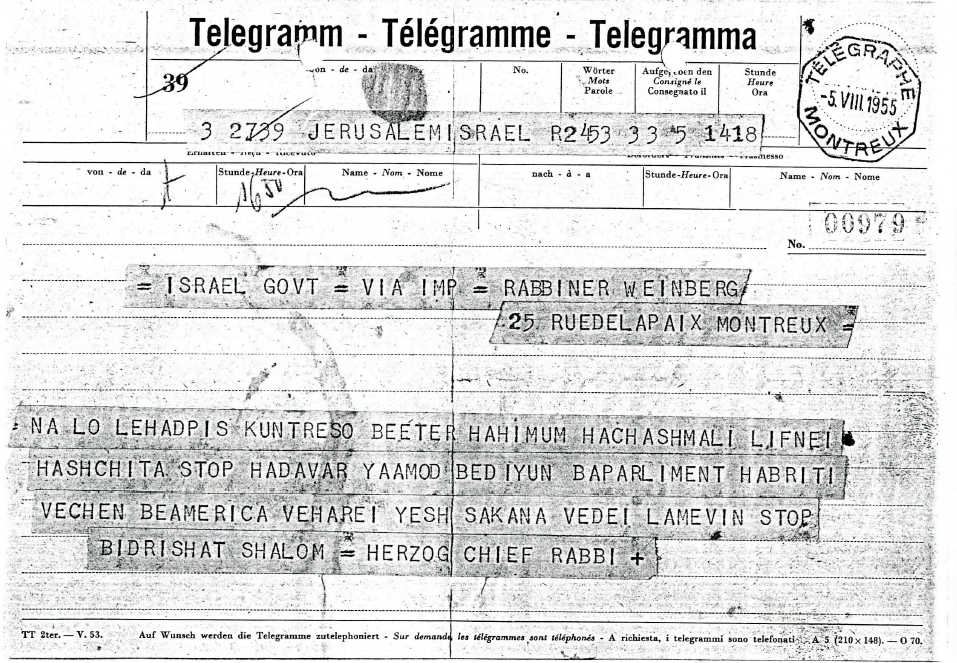 Telegramm - Télégramme - Telegramma
39
von - de - da
No.
Wörter
Mots
Parole
Aufgegeben den
Consigné le
Consegnato il
Stunde
Heure
Ora
TÉLÉGRAPHE
-5. VIII. 1955
MONTREUX
3 2739 JERUSALEMISRAEL R2453 33 5 1418
Erhalten - Reçu - Ricevuto
von - de - da
Stunde-Heure-Ora
Name - Nom - Nome
nach - à - a
Stunde-Heure-Ora
Name - Nom - Nome
1650
No. 00979
= ISRAEL GOVT = VIA IMP = RABBINER WEINBERG
25 RUEDELAPAIX MONTREUX =
= NA LO LEHADPIS KUNTRESO BEETER HAHIMUM HACHASHMALI LIFNEI
HASHCHITA STOP HADAVAR YAAMOD BEDIYUN BAPARLIMENT HABRITI
VECHEN BEAMERICA VEHAREI YESH SAKANA VEDEI LAMEVIN STOP
BIDRISHAT SHALOM = HERZOG CHIEF RABBI +
TT 2ter. — V. 53. Auf Wunsch werden die Telegramme zutelephoniert - Sur demande, les télégrammes sont téléphonés - A richiesta, i telegrammi sono telefonati A 5 (210 × 148). — O 70.